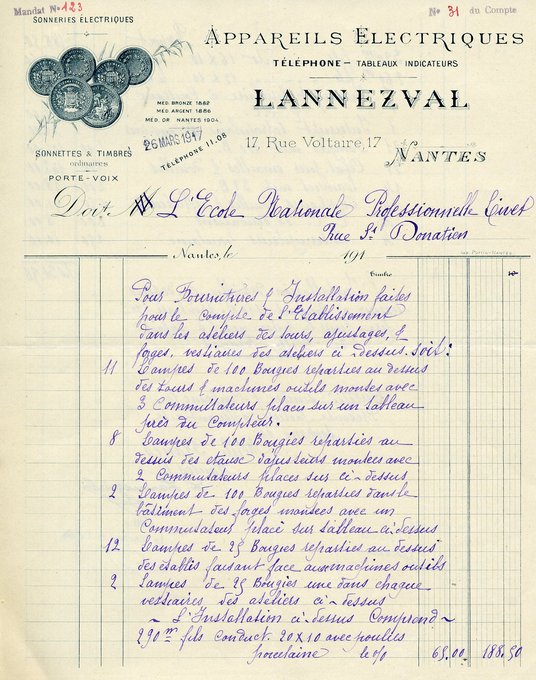 Mandat No 123
No 31 du Compte
SONNERIES ÉLECTRIQUES
APPAREILS ELECTRIQUES
TÉLÉPHONE — TABLEAUX INDICATEURS
LANNEZVAL
MÉD. BRONZE 1882
MÉD. ARGENT 1886
MÉD. OR NANTES 1904
26 MARS 1917
TÉLÉPHONE 11.08
17, RUE VOLTAIRE, 17
NANTES
SONNETTES & TIMBRES
ordinaires
PORTE-VOIX
Doit M L'Ecole Nationale Professionnelle Livet
Rue St Donatien
Nantes, le 191
Timbre
Pour Fournitures & Installation faites
pour le Compte de l'Etablissement
dans les atéliers des tours, ajustages, &
forges, vestiaires des ateliers ci dessus. soit:
11 Lampes de 100 Bougies reparties au dessus
des tours & machines outils montes avec
3 Commutateurs places sur un tableau
près du Compteur.
8 Lampes de 100 Bougies reparties au
dessus des etaux d'ajusteurs montees avec
2 Commutateurs places sur ci-dessus
2 Lampes de 100 Bougies reparties dans le
bâtiment des forges montees avec un
Commutateur placé sur tableau ci-dessus
12 Lampes de 25 Bougies reparties au dessus
des établis faisant face aux machines outils
2 Lampes de 25 Bougies une dans chaque
vestiaires des ateliers ci-dessus
~ L'Installation ci-dessus Comprend ~
290m fils conduct. 20x10 avec poulies
porcelaine le % 65.00 188.50